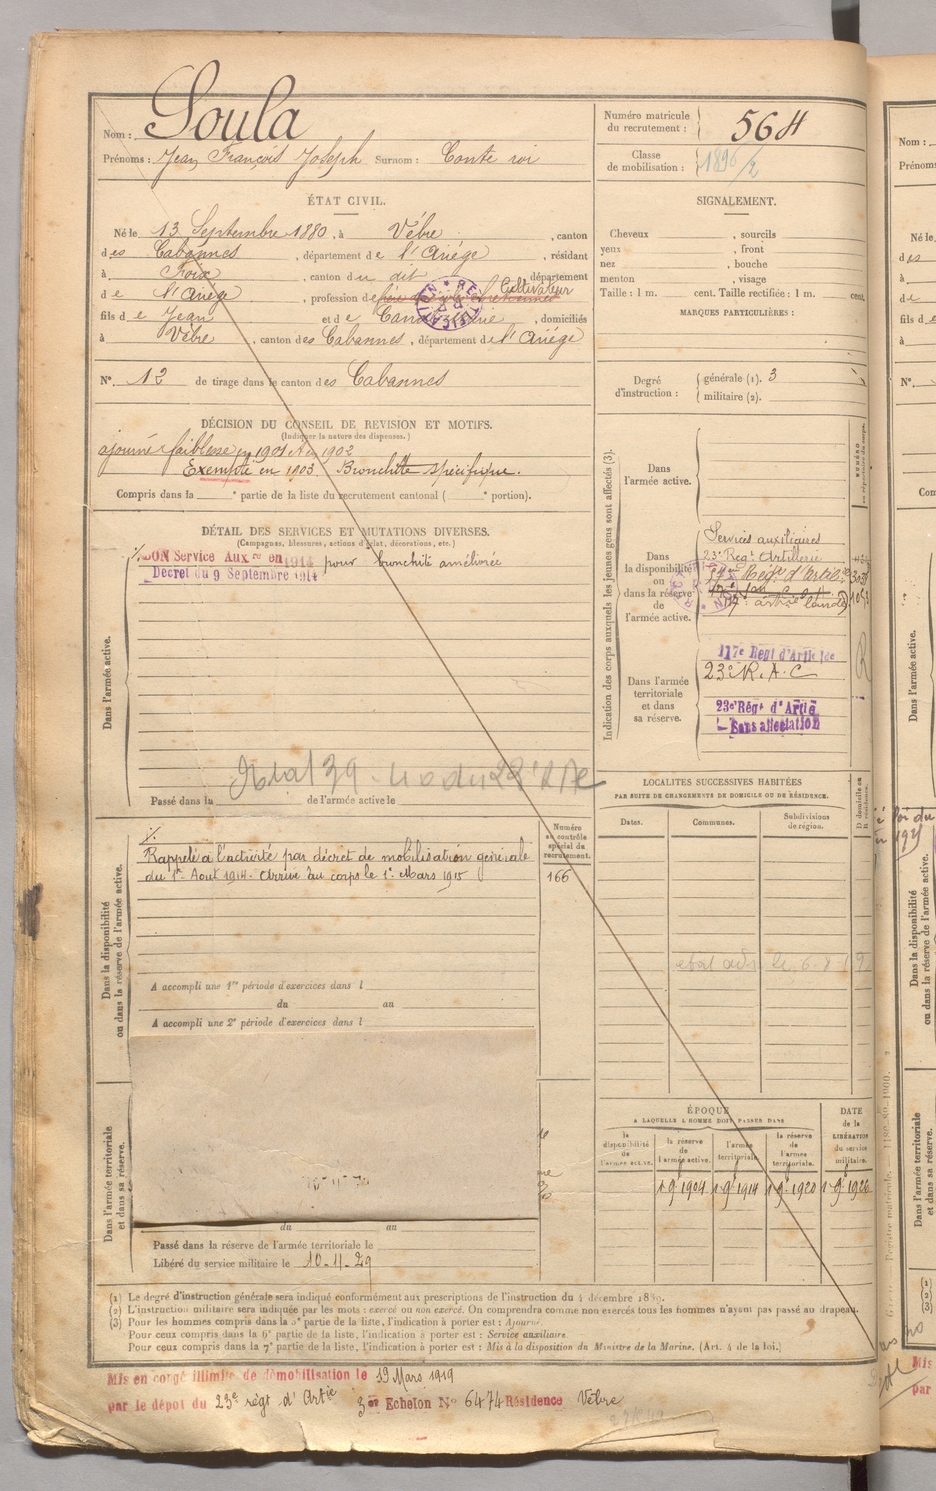 Nom : Soula
Prénoms : Jean François Joseph Surnom : Conte roi
Numéro matricule du recrutement : 564
Classe de mobilisation : 1896/2
ÉTAT CIVIL.
Né le 13 Septembre 1880, à Vèbre, canton
des Cabannes, département de l'Ariège, résidant
à Foix, canton du dit, département
de l'Ariège, profession de Cultivateur
fils de Jean et de, domiciliés
à Vèbre, canton des Cabannes, département de l'Ariège
N° 12 de tirage dans le canton des Cabannes
SIGNALEMENT.
Cheveux , sourcils
yeux , front
nez , bouche
menton , visage
Taille : 1 m. cent. Taille rectifiée : 1 m. cent.
MARQUES PARTICULIÈRES :
Degré d'instruction : générale (1). 3
militaire (2).
DÉCISION DU CONSEIL DE REVISION ET MOTIFS.
(Indiquer la nature des dispenses.)
ajourné faiblesse en 1901 et en 1902
Exempté en 1903 Bronchite spécifique.
Compris dans la e partie de la liste du recrutement cantonal ( e portion).
DÉTAIL DES SERVICES ET MUTATIONS DIVERSES.
(Campagnes, blessures, actions d'éclat, décorations, etc.)
BON Service Auxre en 1914 pour bronchite améliorée
Décret du 9 Septembre 1914
Dans l'armée active.
Passé dans la de l'armée active le
Indication des corps auxquels les jeunes gens sont affectés (3).
Dans l'armée active.
NUMÉRO
Dans la disponibilité ou dans la réserve de l'armée active.
Services auxiliaires
23e Régt Artillerie
Dans l'armée territoriale et dans sa réserve.
117e Regt d'Artie
23e R.A.C
23e Régt d'Artie
Sans affectation
LOCALITÉS SUCCESSIVES HABITÉES
PAR SUITE DE CHANGEMENTS DE DOMICILE OU DE RÉSIDENCE.
Dates. Communes. Subdivisions de région. D domicile ou R résidence.
Dans la disponibilité ou dans la réserve de l'armée active.
Numéro au contrôle spécial du recrutement.
Rappelé à l'activité par décret de mobilisation générale
du 1er Aout 1914 - Arrivé au corps le 1er Mars 1915 166
A accompli une 1re période d'exercices dans l
du au
A accompli une 2e période d'exercices dans l
Dans l'armée territoriale et dans sa réserve.
du au
Passé dans la réserve de l'armée territoriale le
Libéré du service militaire le 10-11-29
ÉPOQUE
A LAQUELLE L'HOMME DOIT PASSER DANS
la disponibilité de l'armée active. la réserve de l'armée active. l'armée territoriale. la réserve de l'armée territoriale.
DATE de la LIBÉRATION du service militaire.
1 9e 1904 1 9e 1914 1 9e 1920 1 9e 1926
(1) Le degré d'instruction générale sera indiqué conformément aux prescriptions de l'instruction du 4 décembre 1889.
(2) L'instruction militaire sera indiquée par les mots : exercé ou non exercé. On comprendra comme non exercés tous les hommes n'ayant pas passé au drapeau.
(3) Pour les hommes compris dans la 5e partie de la liste, l'indication à porter est : Ajourné
Pour ceux compris dans la 6e partie de la liste, l'indication a porter est : Service auxiliaire.
Pour ceux compris dans la 7e partie de la liste, l'indication à porter est : Mis à la disposition du Ministre de la Marine. (Art. 4 de la loi.)
Mis en congé illimité de démobilisation le 19 Mars 1919
par le dépot du 23e régt d'Artie 3e Echelon N° 6474 Résidence Vèbre